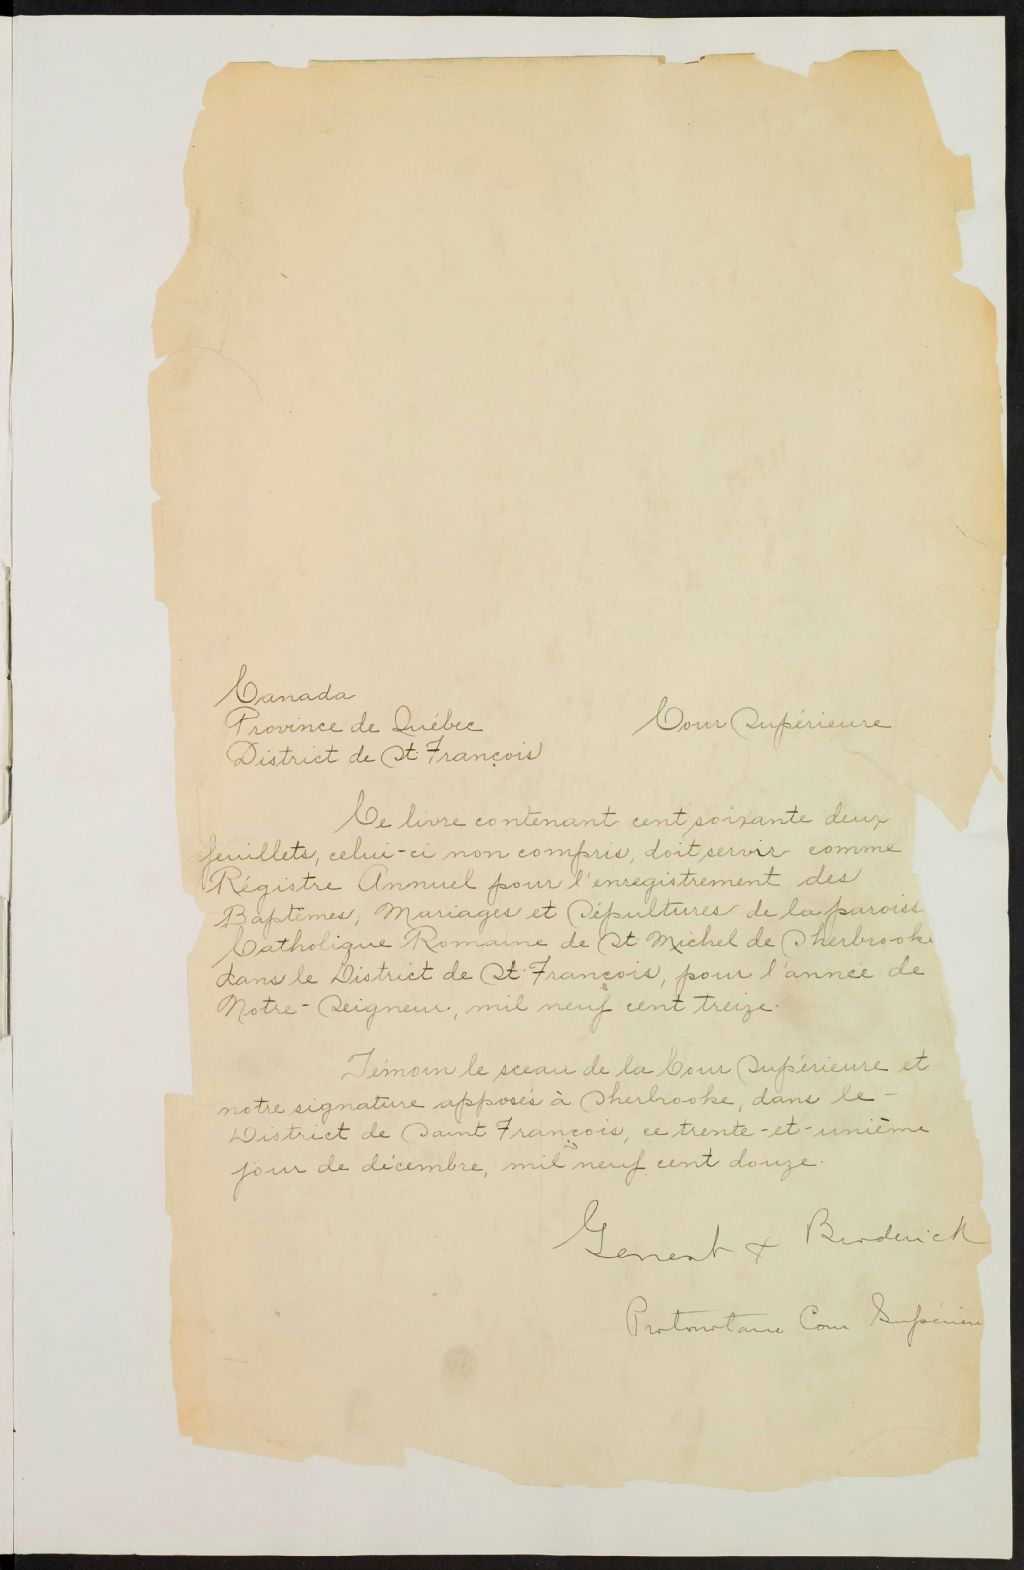 Canada
Province de Québec
District de St. François
Cour Supérieure
Ce livre contenant cent soixante deux
feuillets, celui-ci non compris, doit servir comme
Régistre Annuel pour l'enregistrement des
Baptêmes, Mariages et Sépultures de la paroiss
Catholique Romaine de St Michel de Sherbrooke
dans le District de St. François, pour l'année de
Notre-Seigneur, mil neuf cent treize.
Témoin le sceau de la Cour Supérieure et
notre signature apposés à Sherbrooke, dans le -
District de Saint François, ce trente-et-unième
jour de décembre, mil neuf cent douze.
Genest & Broderick
Protonotaire Cour Supérieu